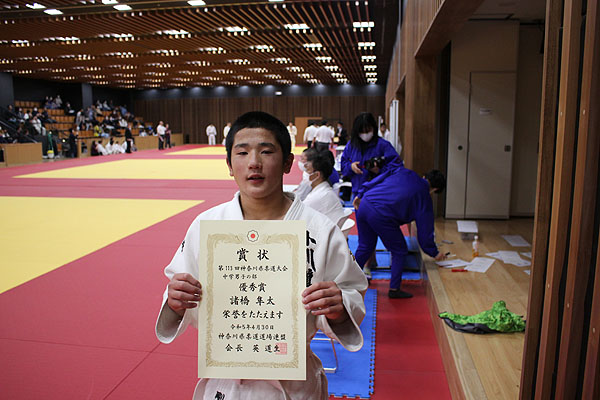 賞状
第113回神奈川県柔道大会
中学男子の部
優秀賞
諸橋 隼太
栄誉をたたえます
令和5年4月30日
神奈川県柔道道場連盟
会長 英 道生